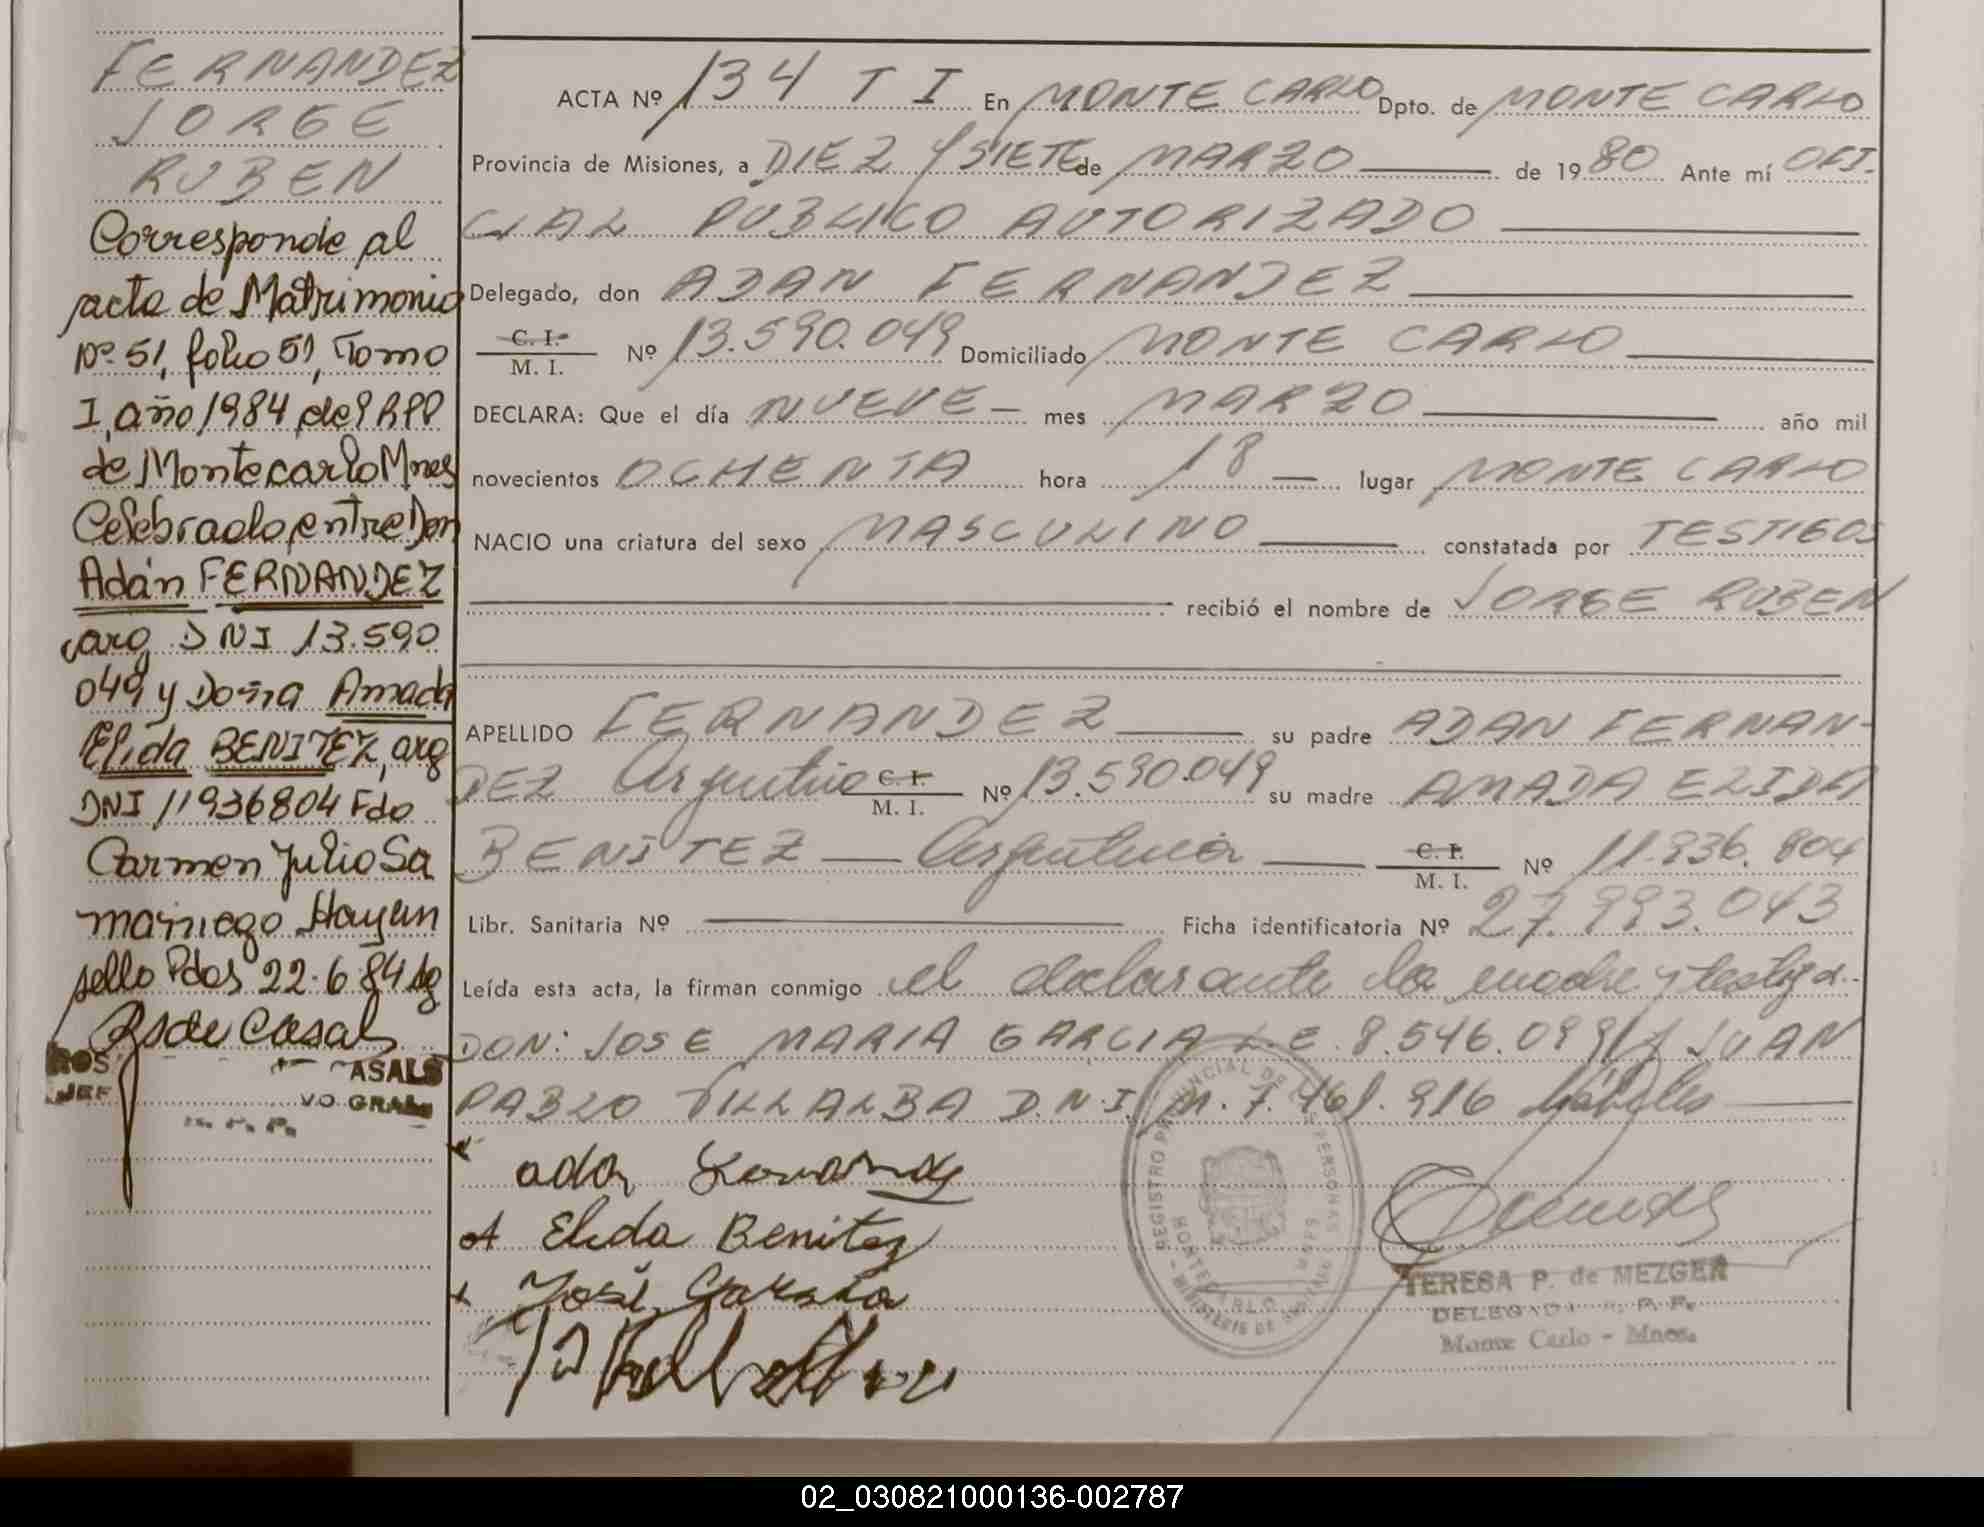 FERNANDEZ
JORGE
RUBEN
Corresponde al
acta de Matrimonio
Nº 51, folio 51, Tomo
I, año 1984, del RPP
de Montecarlo Mnes
Celebrado, entre Don
Adán FERNANDEZ
arg. DNI 13.590
049 y Doña Amada
Elida BENITEZ, arg
DNI 11936804 Fdo
Carmen Julio Sa
maniego Hay un
sello Pdos 22.6.84
de Casals
ROS ASALS
JEF VO GRAL
ACTA Nº 134 T I En MONTE CARLO Dpto. de MONTE CARLO
Provincia de Misiones, a DIEZ Y SIETE de MARZO de 1980 Ante mí OFI-
CIAL PUBLICO AUTORIZADO
Delegado, don ADAN FERNANDEZ
C. I.
M. I. Nº 13.590.049 Domiciliado MONTE CARLO
DECLARA: Que el día NUEVE - mes MARZO año mil
novecientos OCHENTA hora 18 lugar MONTE CARLO
NACIO una criatura del sexo MASCULINO constatada por TESTIGOS
recibió el nombre de JORGE RUBEN
APELLIDO FERNANDEZ su padre ADAN FERNAN-
DEZ Argentino C. I. M. I. Nº 13.590.049 su madre AMADA ELIDA
BENITEZ Argentina C. I. M. I. Nº 11.936.804
Libr. Sanitaria Nº Ficha identificatoria Nº 27.993.043
Leída esta acta, la firman conmigo el declarante la madre y testigos
DON: JOSE MARIA GARCIA L.E. 8.546.099 y JUAN
PABLO VILLALBA D.N.I. M. 7.461.916 hábiles
Elida Benitez
José
REGISTRO PROVINCIAL DE LAS PERSONAS
TERESA P. de MEZGER
DELEGADA R. P. P.
Monte Carlo - Mnes.
02_030821000136-002787